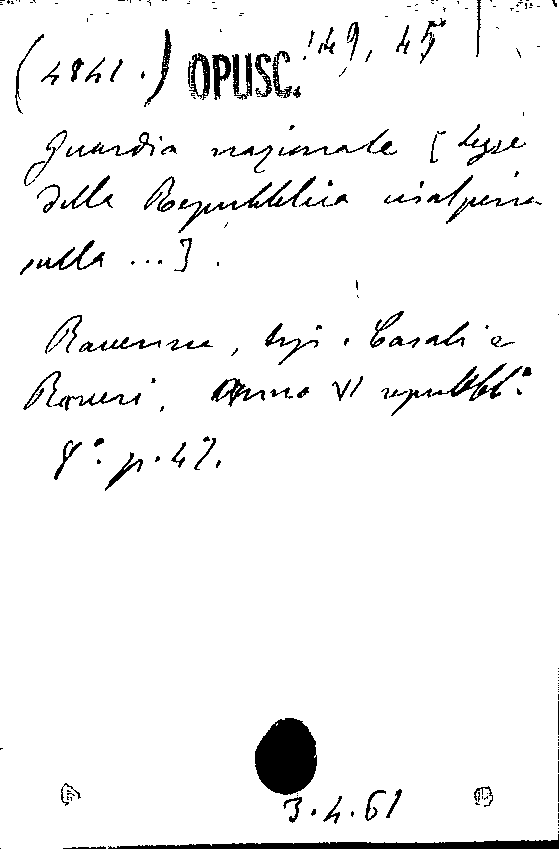 (4841.) OPUSC. 149, 45
Guardia nazionale [Legge
della Repubblica cisalpina
sulla ...].
Ravenna, tip. Casali e
Roveri, Anno VI repubbl.º
8°. p. 47.
3.4.61